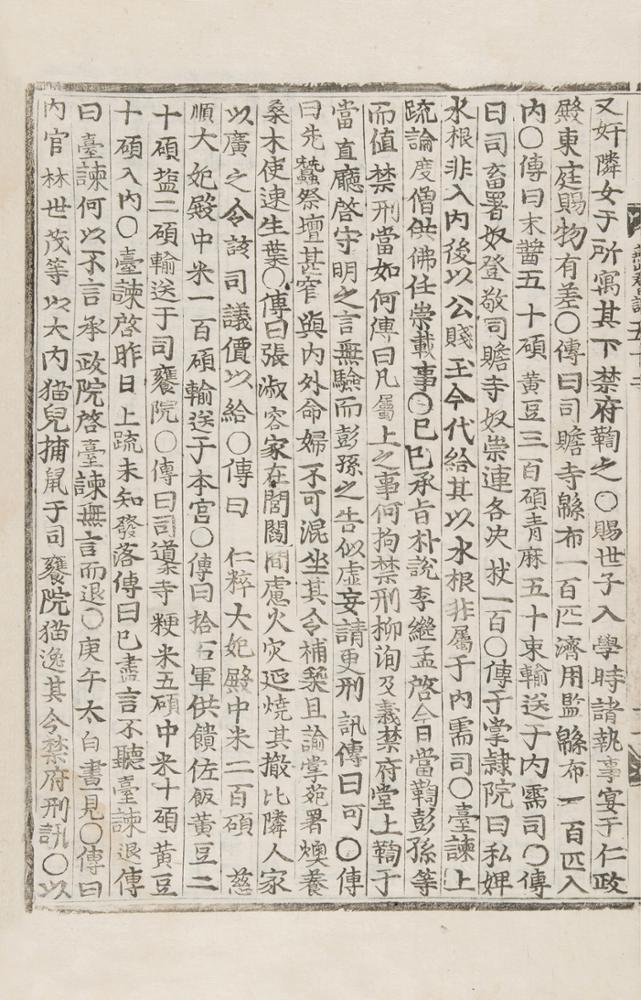 又奸隣女于所寓其下禁府鞫之○賜世子入學時諸執事宴于仁政
殿東庭賜物有差○傳曰司贍寺緜布一百匹濟用監緜布一百匹入
內○傳曰末醬五十碩黃豆三百碩靑麻五十束輸送于內需司○傳
曰司畜署奴登敬司贍寺奴崇連各決杖一百○傳于掌隷院曰私婢
水根非入內後以公賤玉今代給其以水根非屬于內需司○臺諫上
疏論度僧供佛任崇載事○己巳承旨朴說李繼孟啓今日當鞫彭孫等
而値禁刑當如何傳曰凡屬上之事何拘禁刑柳洵及義禁府堂上鞫于
當直廳啓守明之言無驗而彭孫之告似虛妄請更刑訊傳曰可○傳
曰先蠶祭壇甚窄與內外命婦不可混坐其令補築且諭掌苑署燠養
桑木使速生葉○傳曰張淑容家在閭閻間慮火災延燒其撤比隣人家
以廣之令該司議價以給○傳曰 仁粹大妃殿中米二百碩 慈
順大妃殿中米一百碩輸送于本宮○傳曰拾石軍供饋佐飯黃豆二
十碩塩二碩輸送于司饔院○傳曰司䆃寺粳米五碩中米十碩黃豆
十碩入內○臺諫啓昨日上疏未知發落傳曰已盡言不聽臺諫退傳
曰臺諫何以不言承政院啓臺諫無言而退○庚午太白晝見○傳曰
內官林世茂等以大內猫兒捕鼠于司饔院猫逸其令禁府刑訊○以